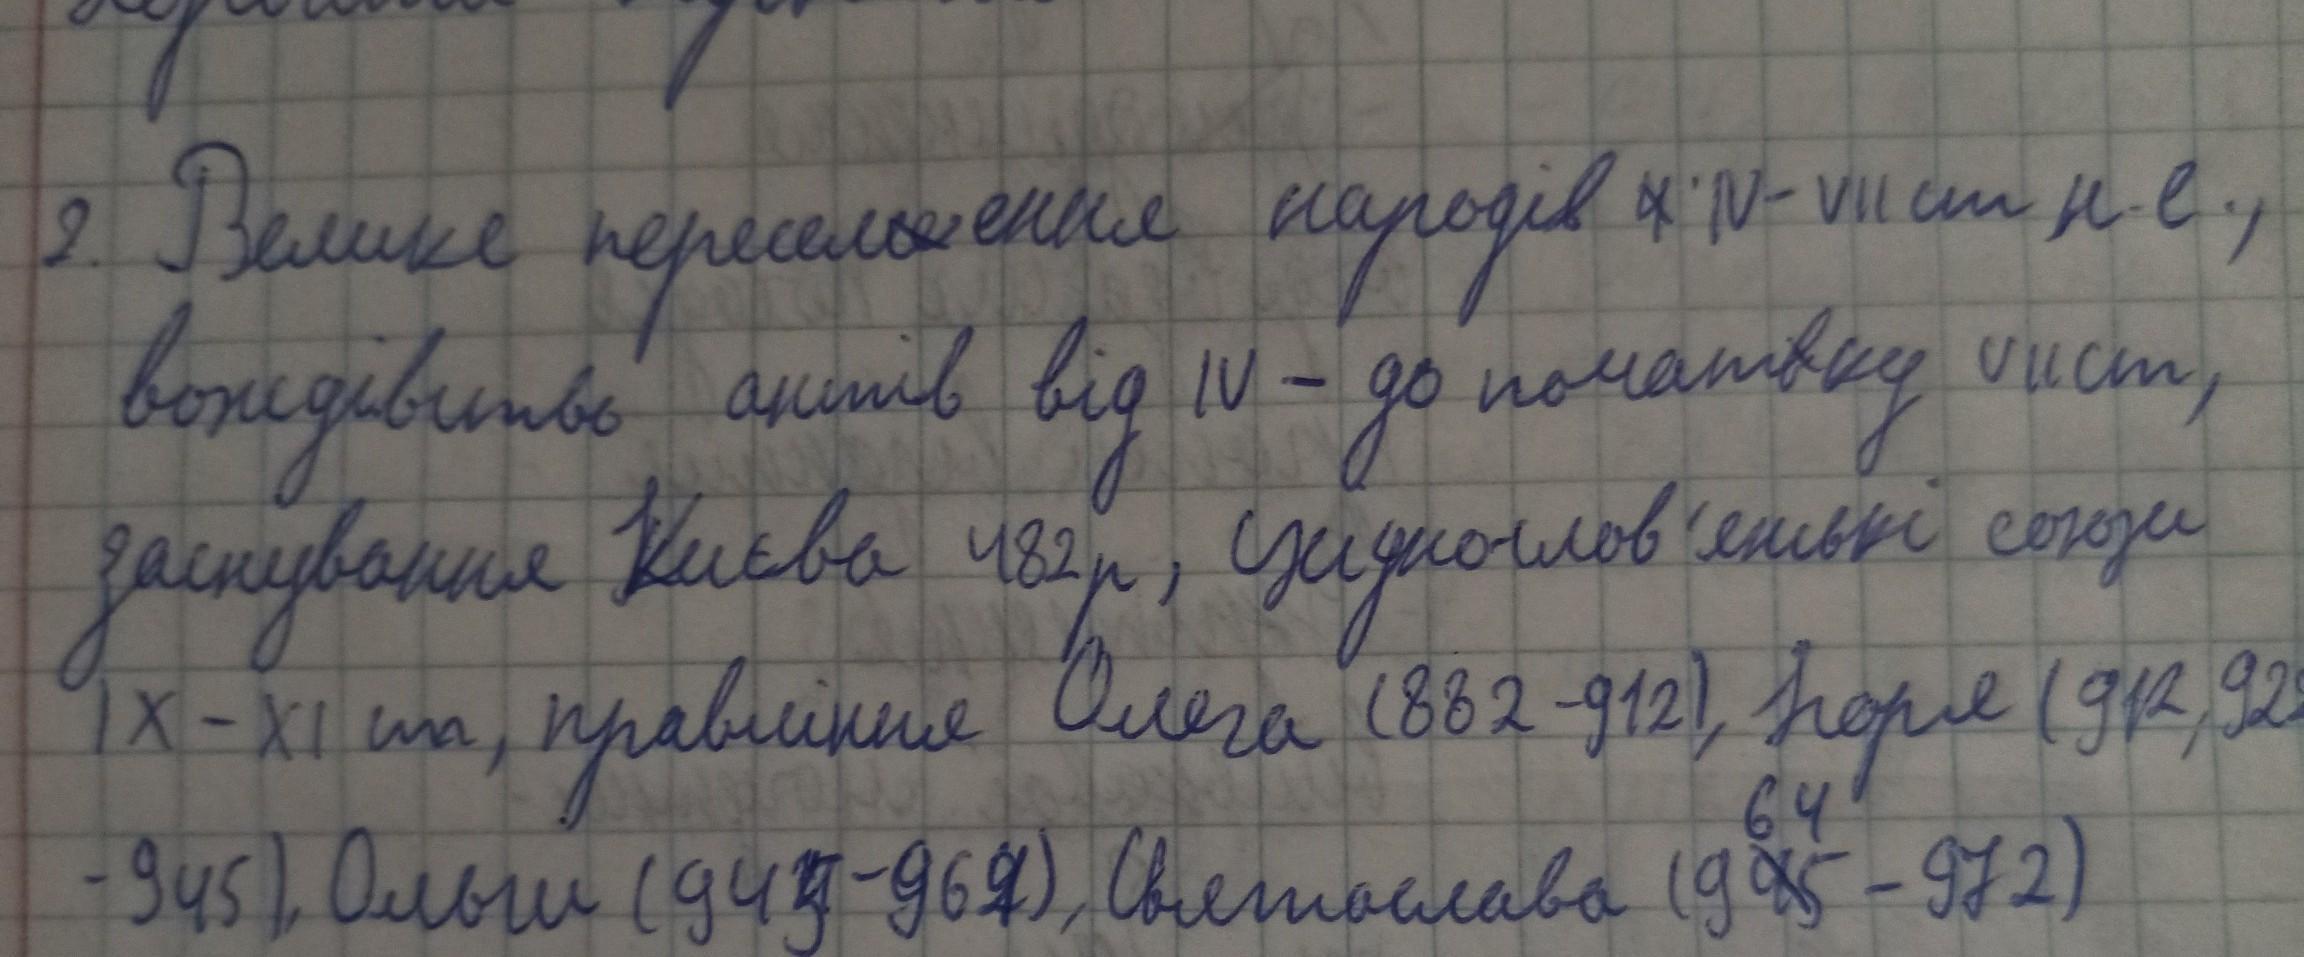 2. Велике переселення народів IV-VII ст н.е.,
вождівство антів від IV - до початку VII ст,
заснування Києва 482р, східнослов'янські союзи
IX - XI ст, правління Олега (882-912), Ігоря (912,92
-945), Ольги (945-964), Святослава (964-972)